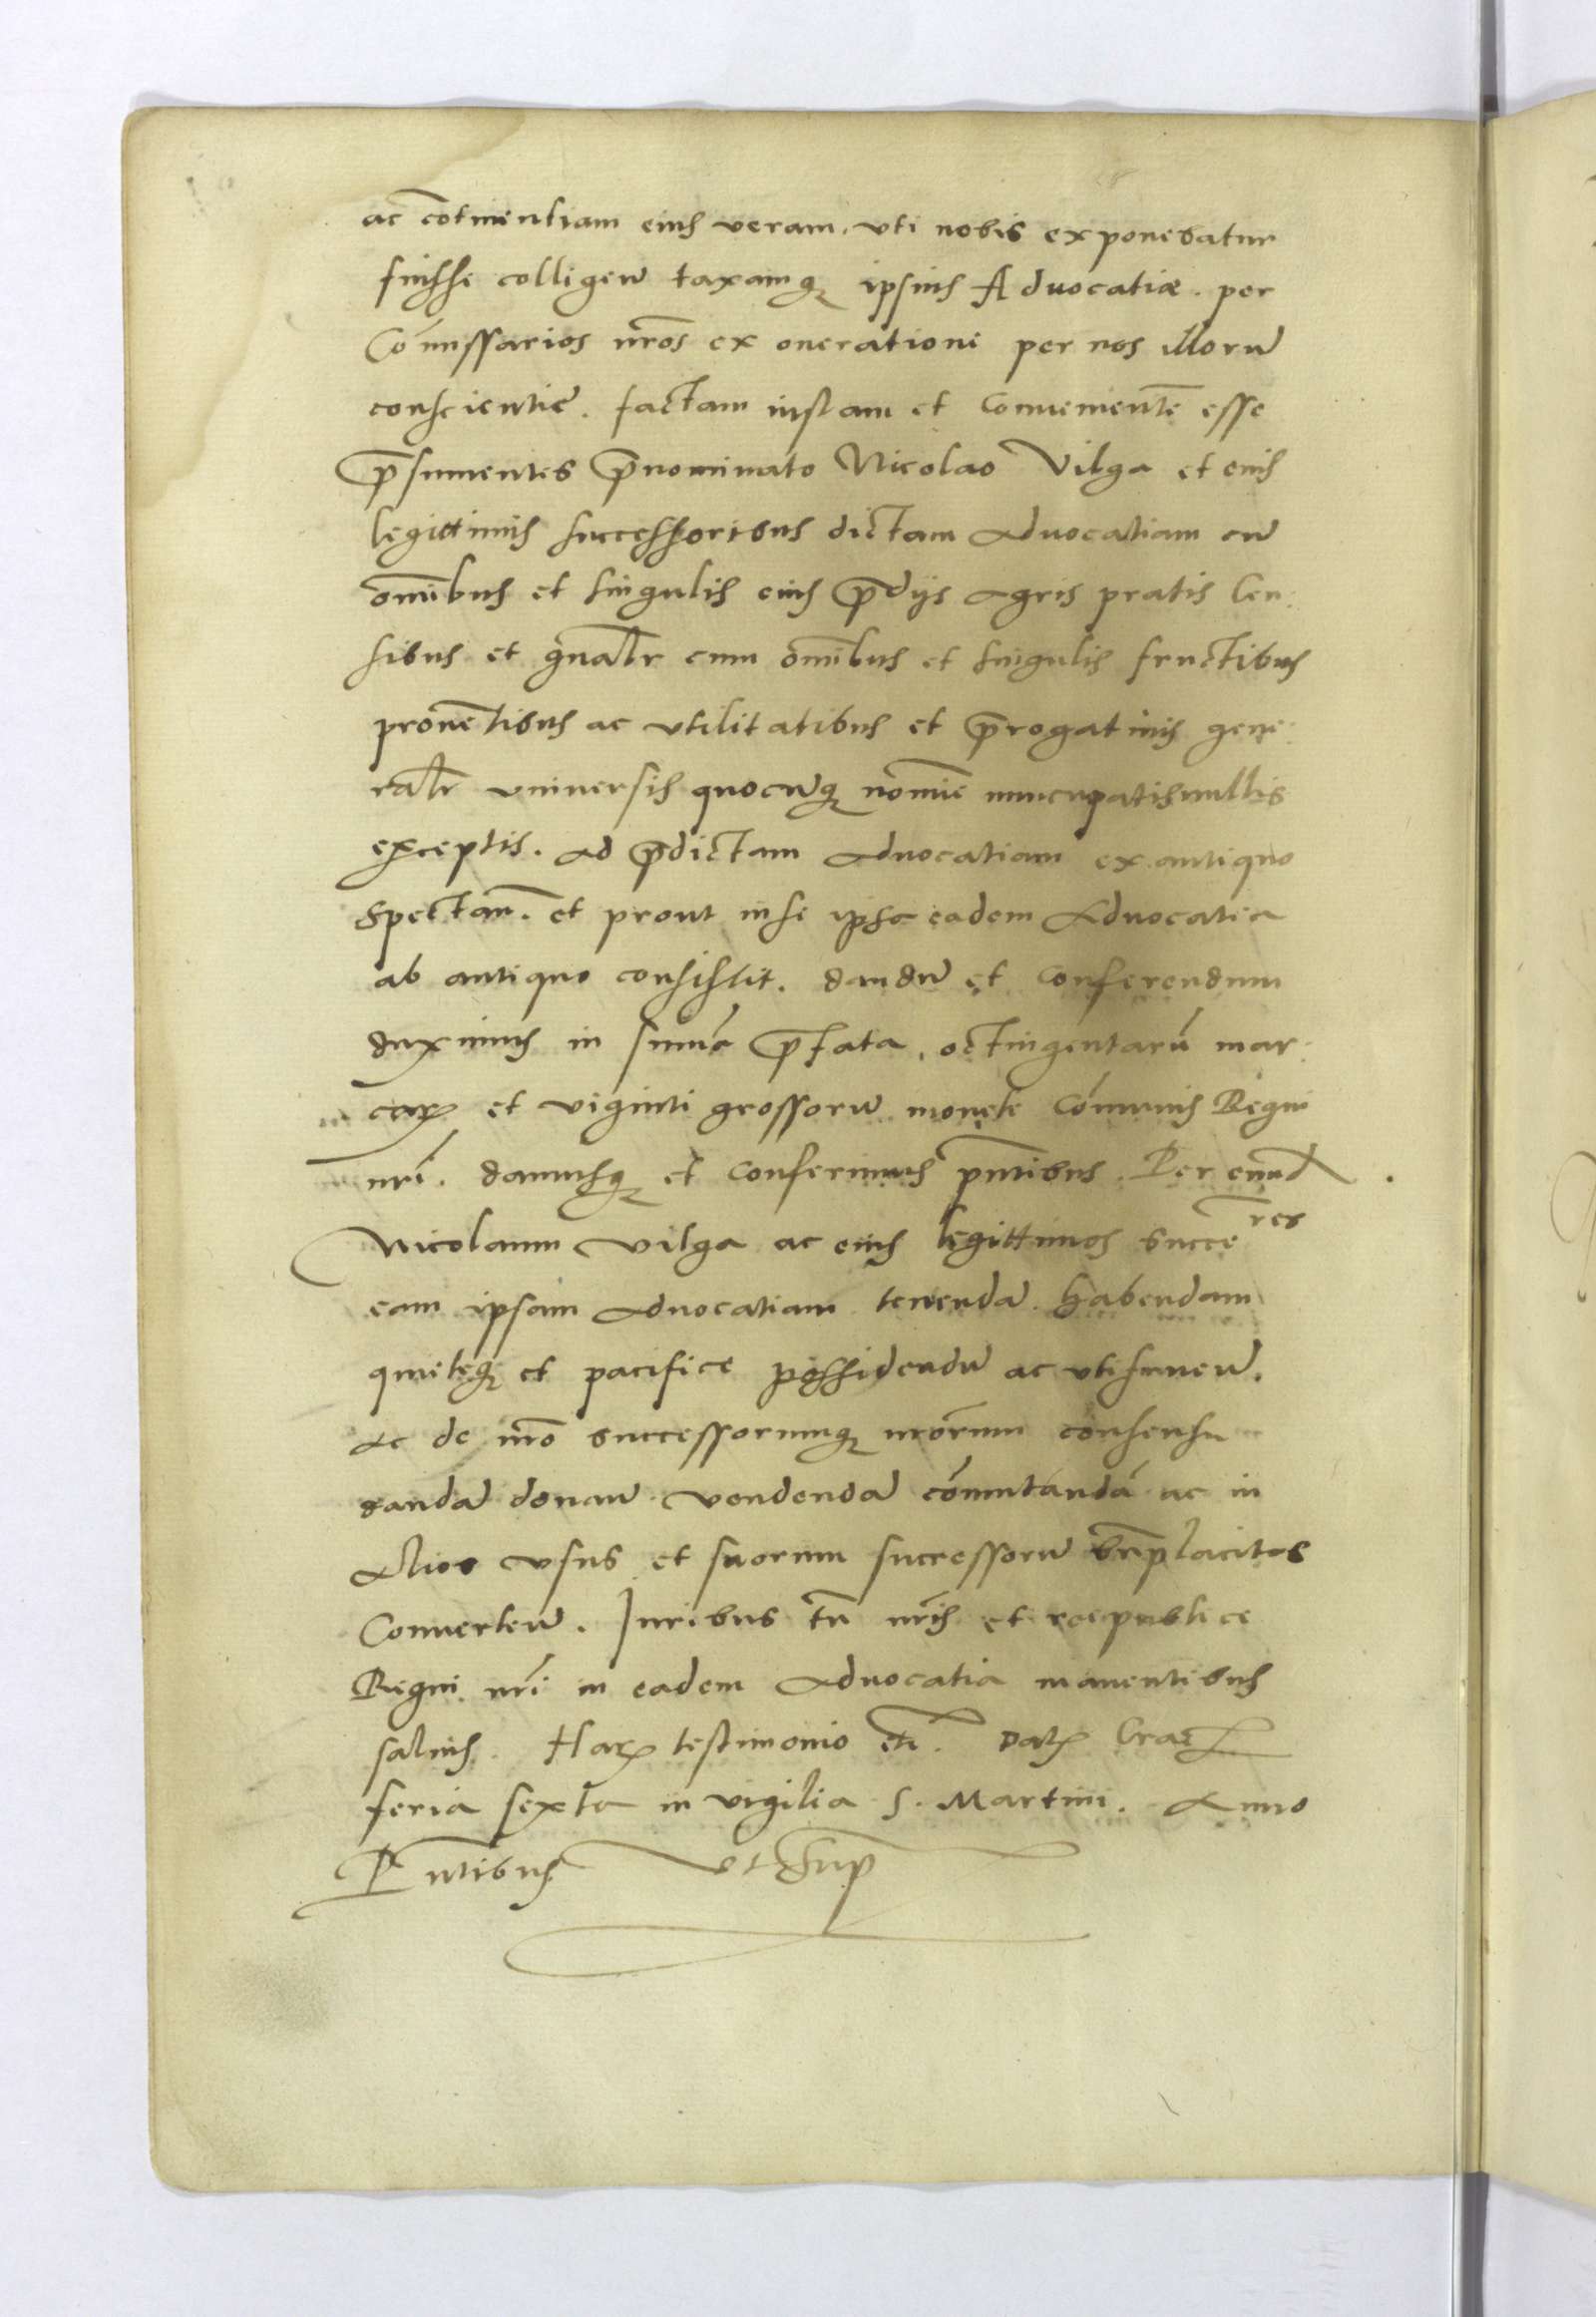 ac cōtinentiam eius veram. vti nobis exponebatur
fuisse colligen̄ taxamq̨ ipsius Aduocatiæ. per
Cōmissarios nr̄os ex oneratione per nos illorū
conscientiē. factam iustam et conuenientē esse
p̄sumentes p̄nominato Nicolao Vilga et eius
legittimis successoribus dictam Aduocatiam cū
om̄ibus et singulis eius p̄dijs agris pratis Cen:
sibus et gn̄alr̄ cum om̄ibus et singulis fructibus
prouētibus ac vtilitatibus et p̄rogatiuis gene:
ralr̄ vniuersis quocūq̨ nomīe nuncupatis nullis
exceptis. ad p̄dictam Aduocatiam ex antiquo
spectan̄. et prout in se ipsa eadem Aduocatia
ab antiquo consistit. dandū et conferendum
duximus in sum̄a p̄fata. octingentarū mar:
carꝝ et viginti grossorū monete Cōmunis Regni
nr̄i. damusq̨ et conferimus p̄ntibus. Per eund̄
Nicolaum Vilga ac eius legittimos succe r̄es
eam ipsam Aduocatiam tenendā habendam
quieteq̨ et pacifice possidendū ac vtifruen̄.
Ac de nr̄o successorumq̨ nr̄orum consensu
dandā donan̄ vendendā cōmutandā ac in
Alios vsus et suorum successorū bn̄placitos
Conuerten̄. Iuribus tn̄ nr̄is et reipublice
Regni nr̄i in eadem Aduocatia manentibus
saluis. Harꝝ testimonio etc̄. Datꝝ Crac̄
feria sexta in vigilia S. Martini. Anno
P̄ntibus vt sup̄